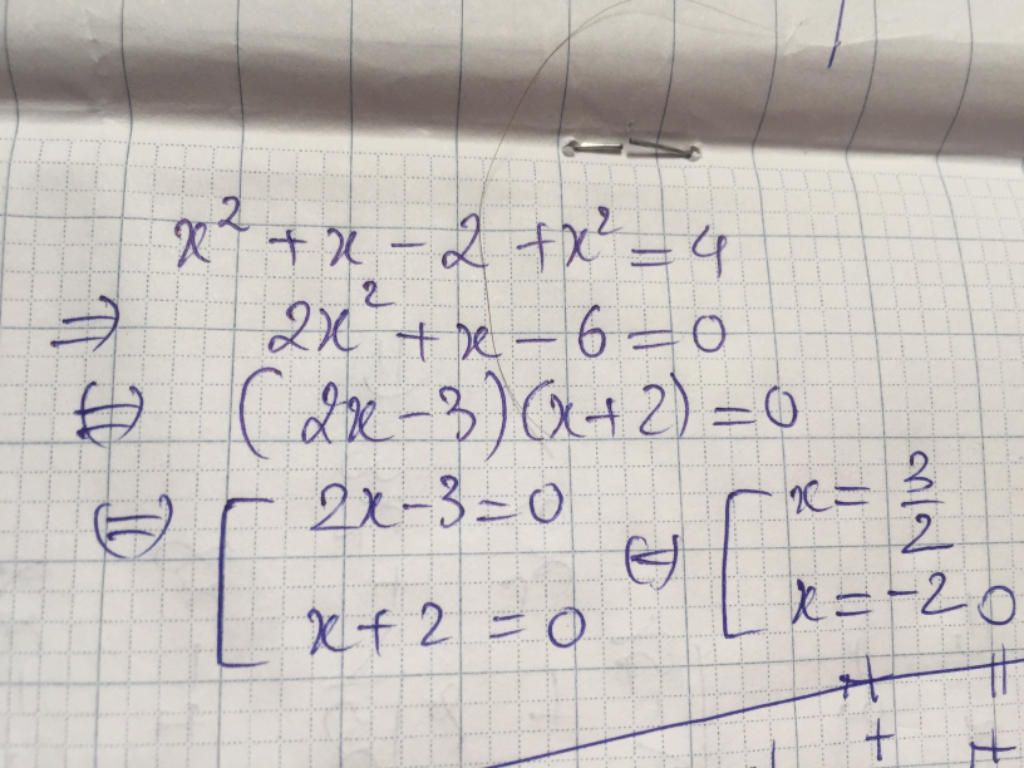 x² + x - 2 + x² = 4
⇒ 2x² + x - 6 = 0
⇔ (2x - 3)(x + 2) = 0
⇔ [ 2x - 3 = 0 ⇔ [ x = 3/2
x + 2 = 0 x = -2 0
+ +